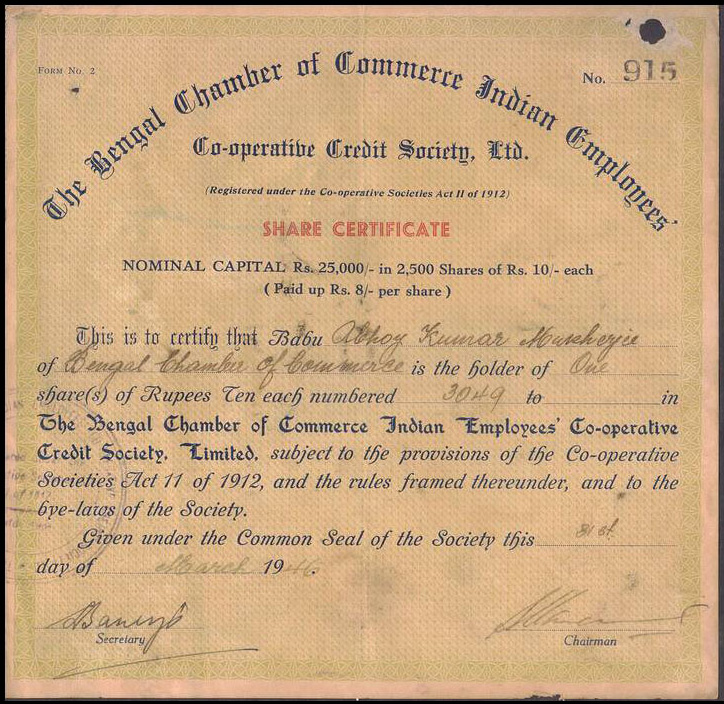 FORM NO. 2
No. 915
The Bengal Chamber of Commerce Indian Employees'
Co-operative Credit Society, Ltd.
(Registered under the Co-operative Societies Act II of 1912)
SHARE CERTIFICATE
NOMINAL CAPITAL Rs. 25,000/- in 2,500 Shares of Rs. 10/- each
( Paid up Rs. 8/- per share )
This is to certify that Babu Abhoy Kumar Mukherjee
of Bengal Chamber of Commerce is the holder of One
share(s) of Rupees Ten each numbered 3049 to in
The Bengal Chamber of Commerce Indian Employees' Co-operative
Credit Society, Limited, subject to the provisions of the Co-operative
Societies Act 11 of 1912, and the rules framed thereunder, and to the
bye-laws of the Society.
Given under the Common Seal of the Society this 31st
day of March 1946.
Secretary
Chairman